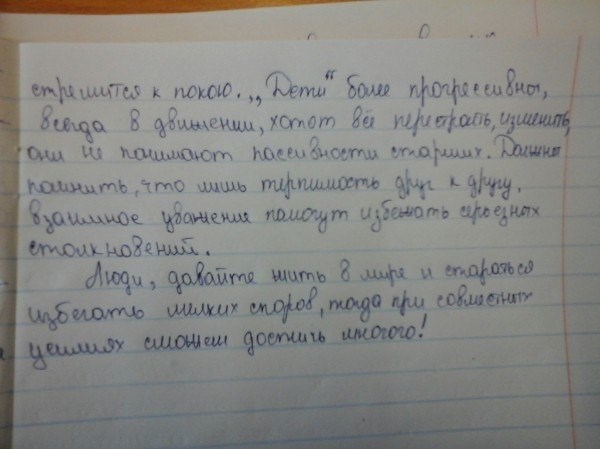 стремится к покою. „Дети“ более прогрессивны,
всегда в движении, хотят всё перестраить, изменить,
они не понимают пассивности старших. Должны
помнить, что лишь терпимость друг к другу,
взаимное уважение помогут избежать серьезных
столкновений.
Люди, давайте жить в мире и стараться
избегать мелких споров, тогда при совместных
усилиях сможем достичь многого!